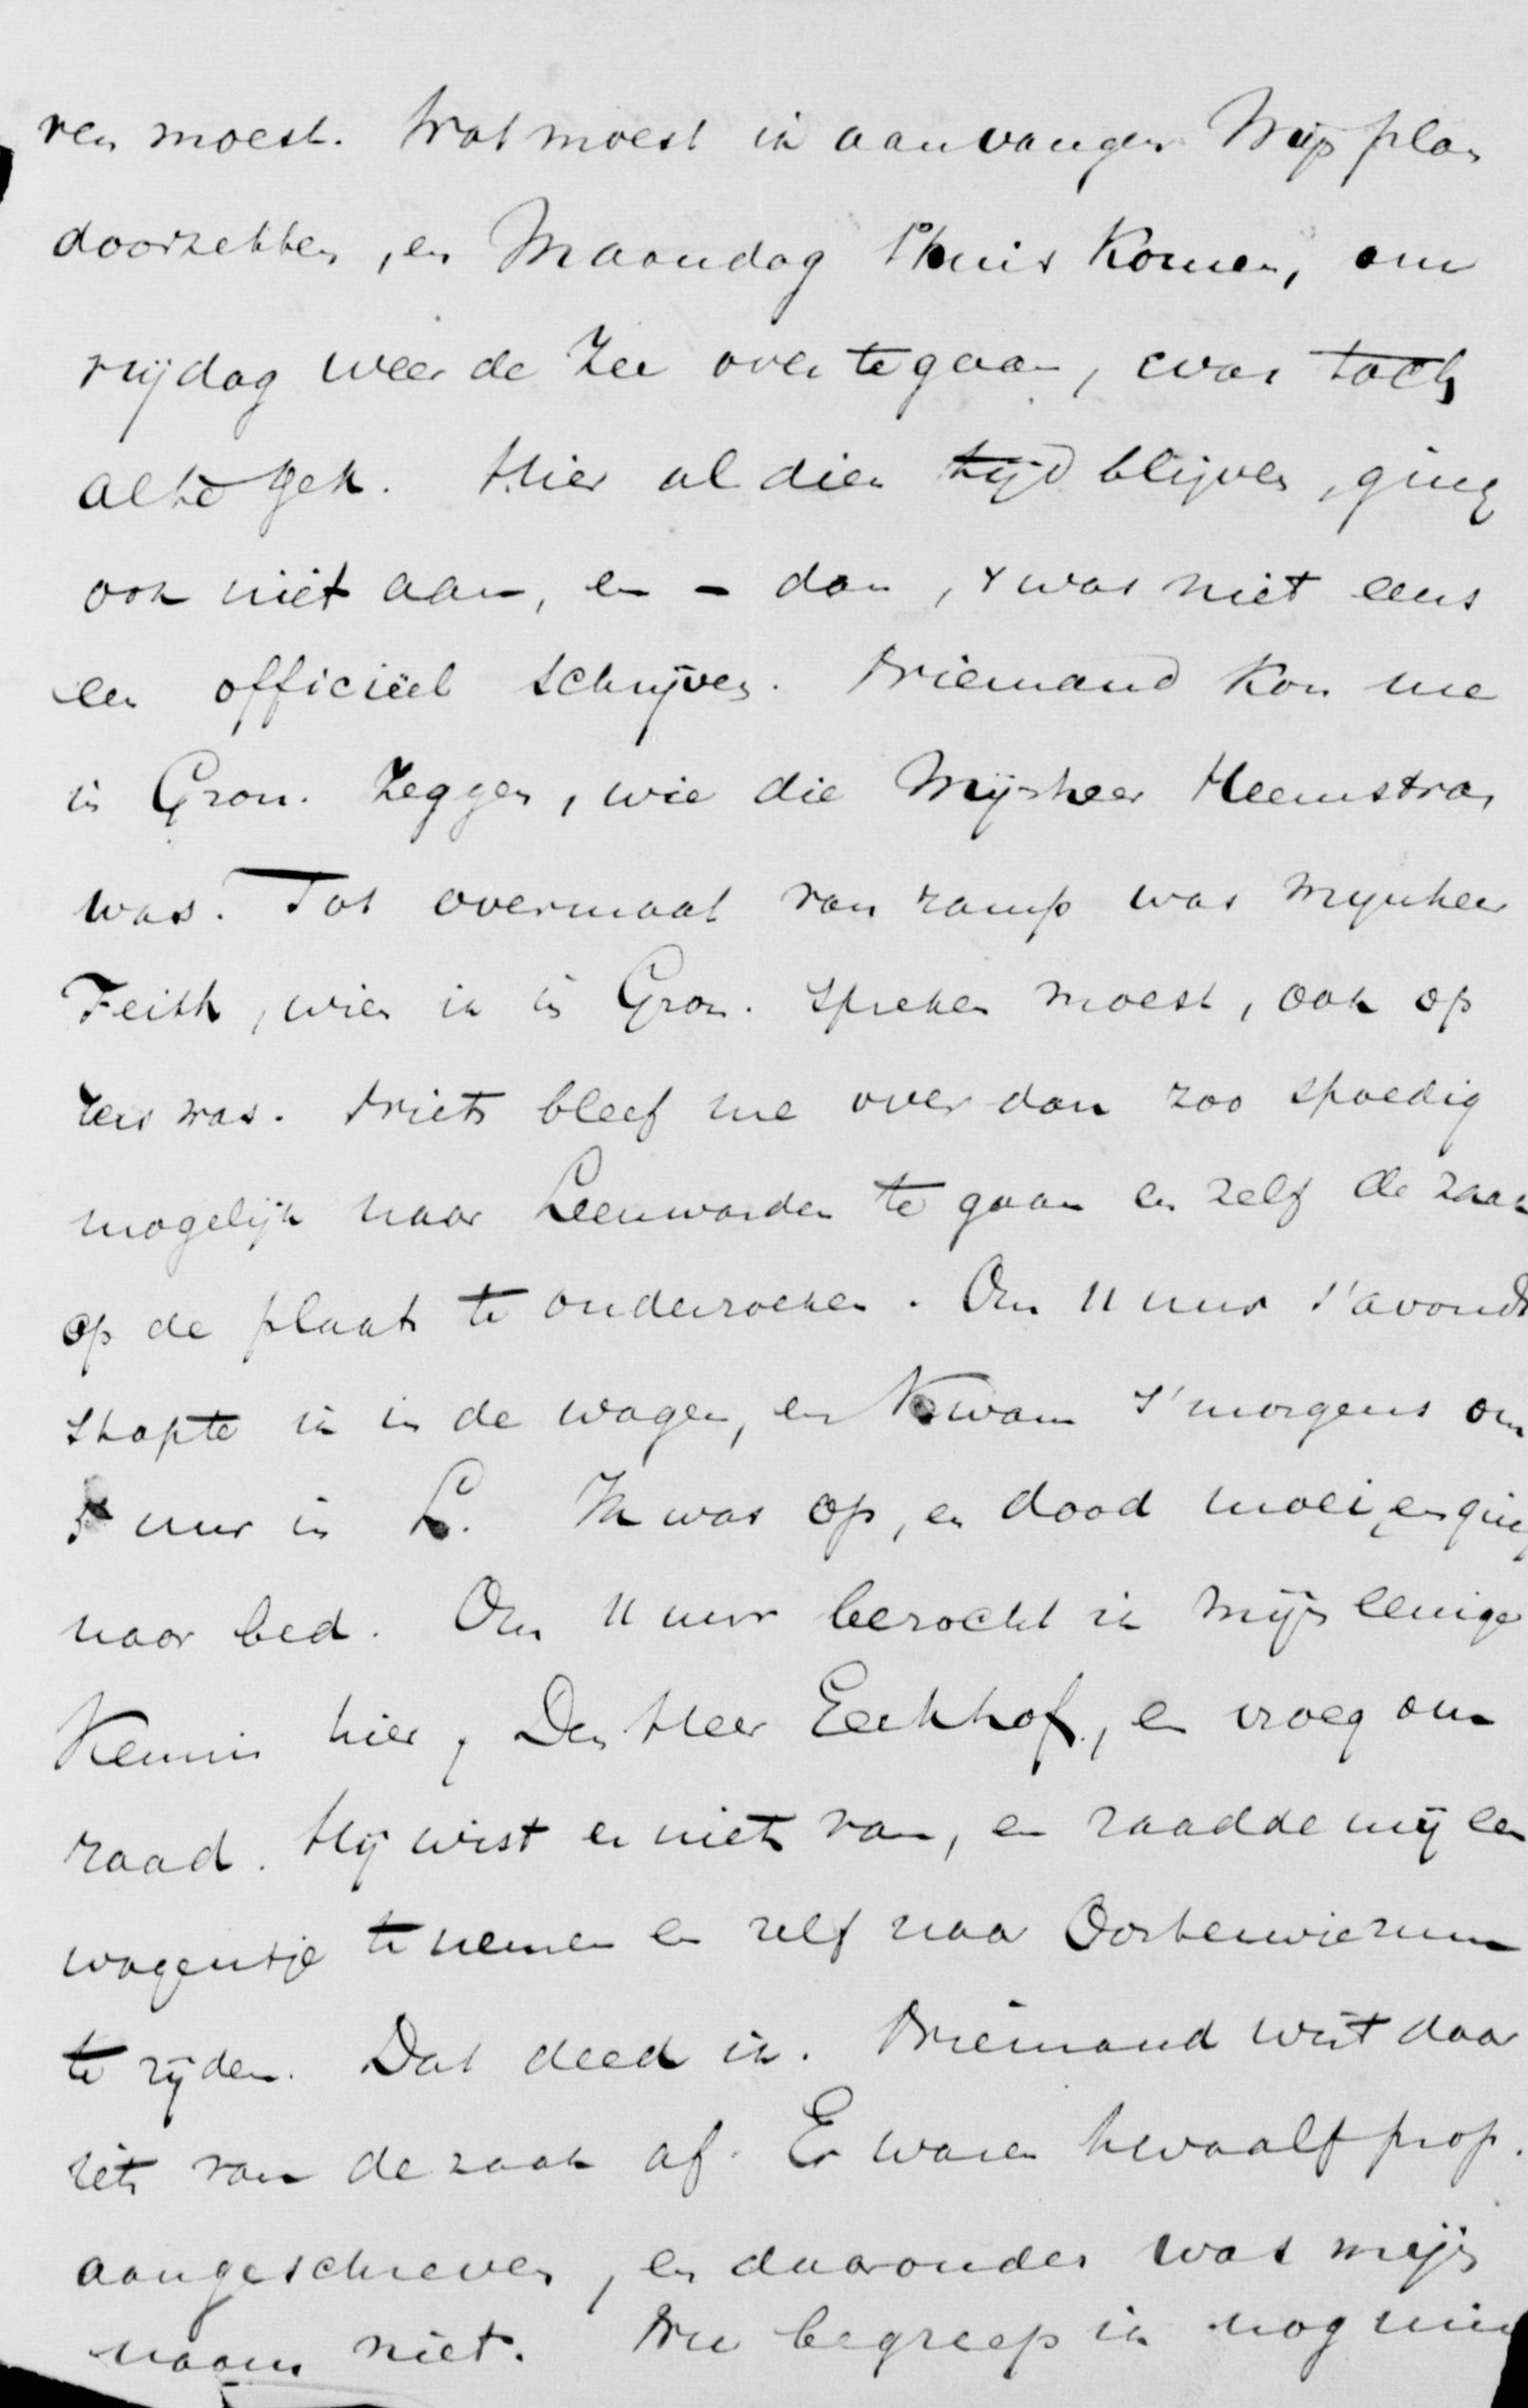 ren moest. Wat moest ik aanvangen Mijn plan
doorzetten, en Maandag thuis komen, om
vrijdag weer de Zee over te gaan, was toch
al te gek. Hier al dien tijd blijven, ging
ook niet aan, en - dan, 't was niet eens
een officiëel schrijven. Niemand kon me
in Gron. zeggen, wie die Mijnheer Heemstra
was. Tot overmaat van ramp was Mynheer
Feith, wien ik in Gron. spreken moest, ook op
reis was. Niets bleef me over dan zoo spoedig
mogelijk naar Leeuwarden te gaan en zelf de zaak
op de plaats te onderzoeken. Om 11 uur s'avonds
stapte ik in de wagen, en kwam s'morgens om
uur in L. Ik was op, en dood moei, en ging
naar bed. Om 11 uur bezocht ik mijn eenige
Kennis hier, Den Heer Eekhof, en vroeg om
raad. Hij wist er niets van, en raadde mij een
wagentje te nemen en zelf naar Oosterwierum
te rijden. Dat deed ik. Niemand wist daar
iets van de zaak af. Er waren twaalf prop.
aangeschreven, en daaronder was mijn
naam niet. Nu begreep ik nog min